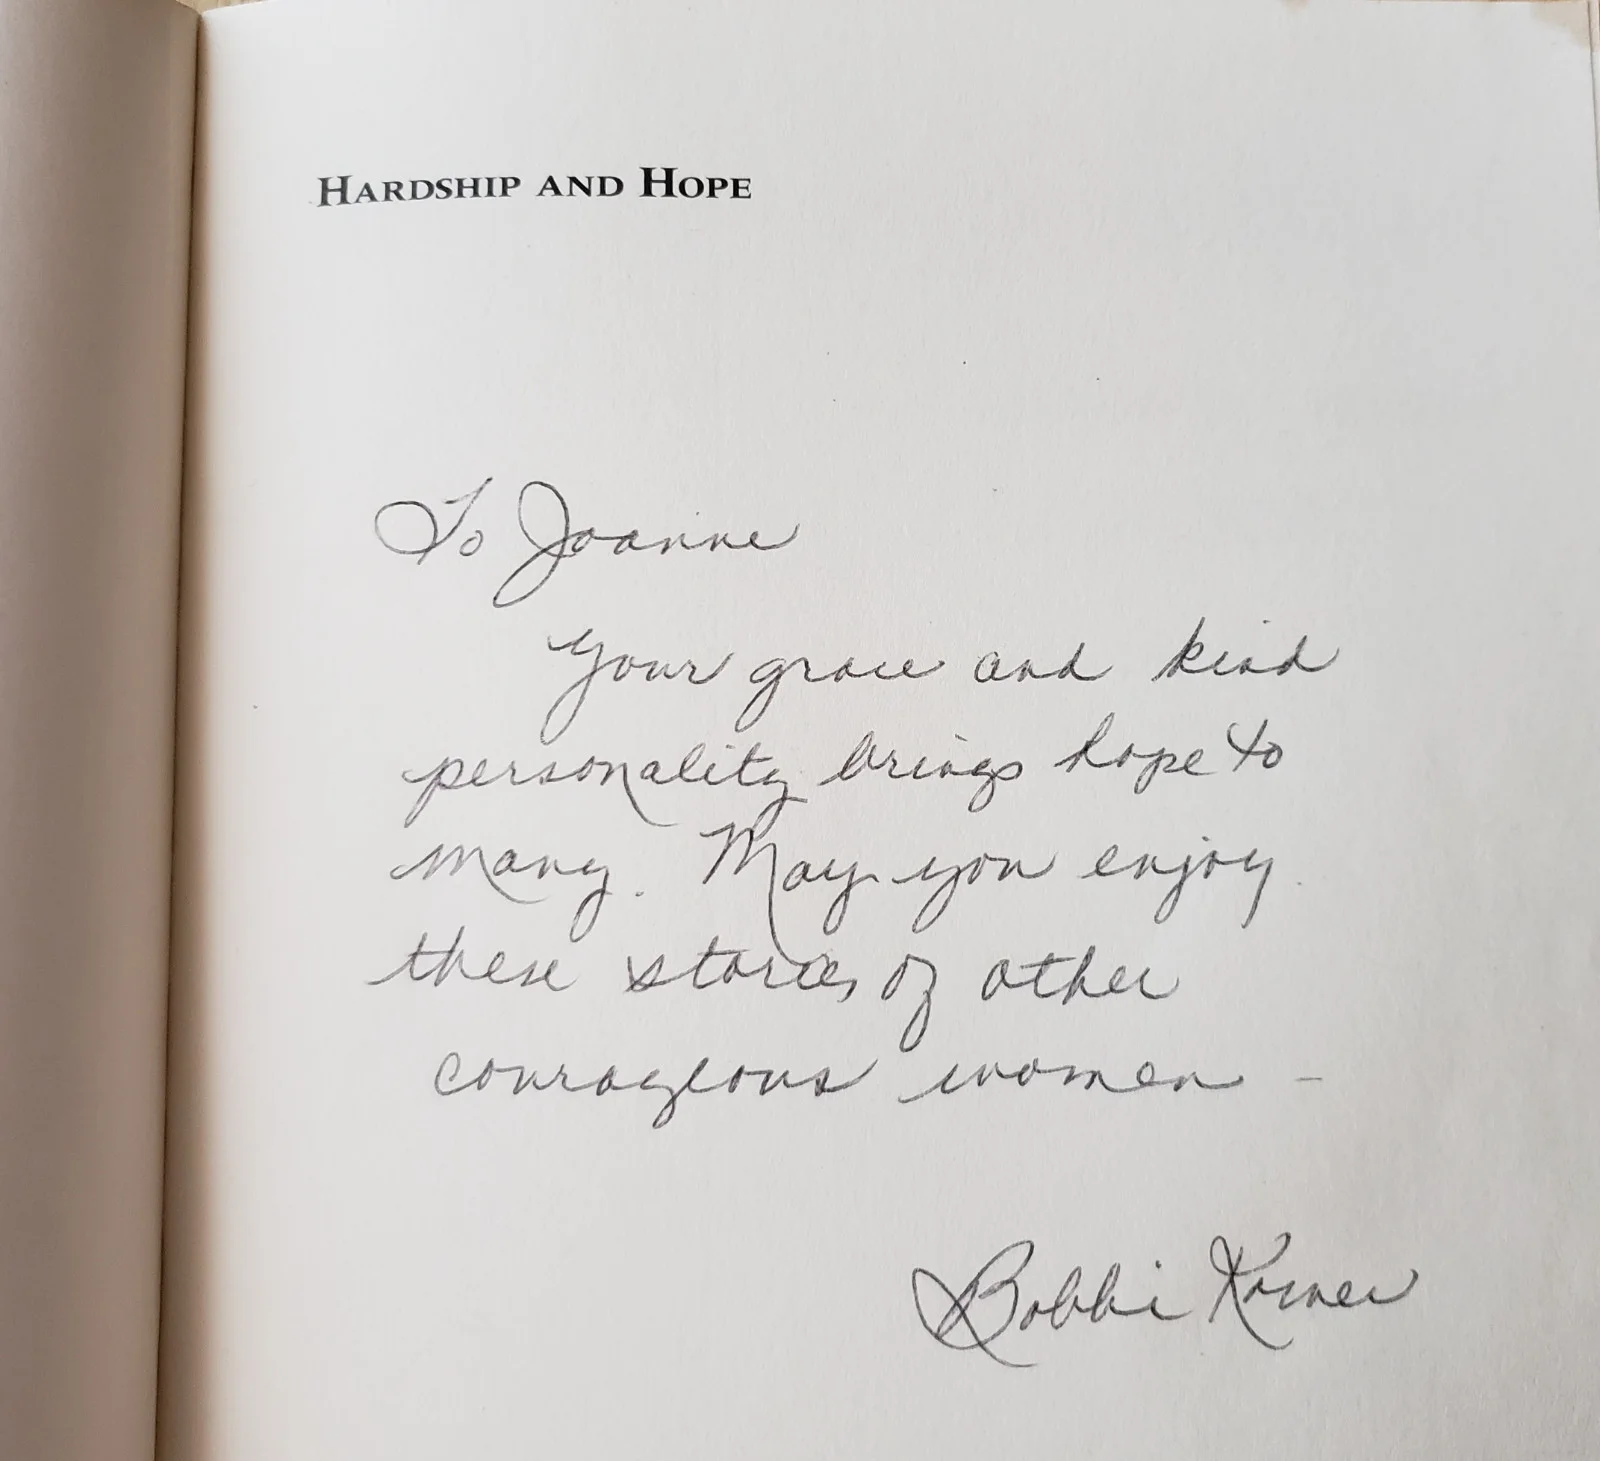 HARDSHIP AND HOPE
To Joanne
Your grace and kind
personality brings hope to
many. May you enjoy
these stories of other
courageous women -
Bobbi Korner